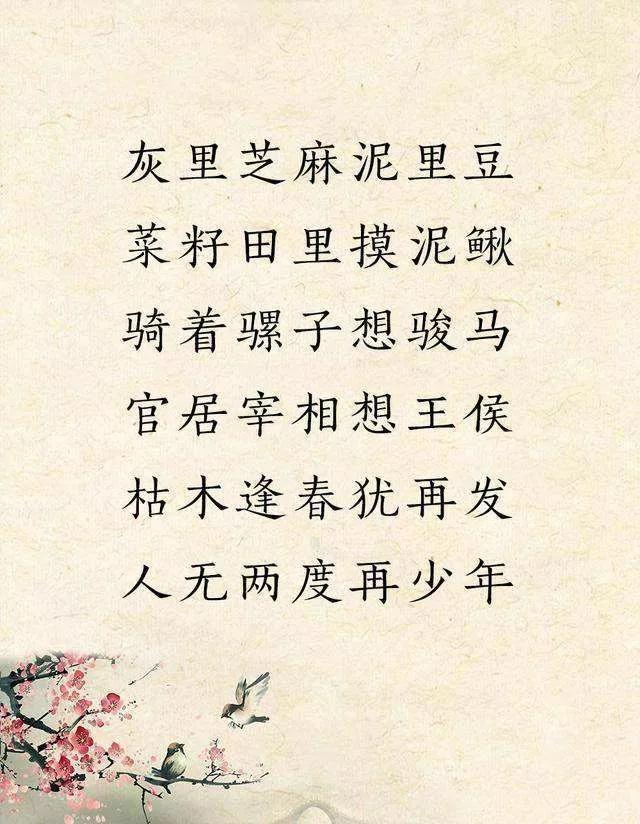 灰里芝麻泥里豆
菜籽田里摸泥鳅
骑着骡子想骏马
官居宰相想王侯
枯木逢春犹再发
人无两度再少年